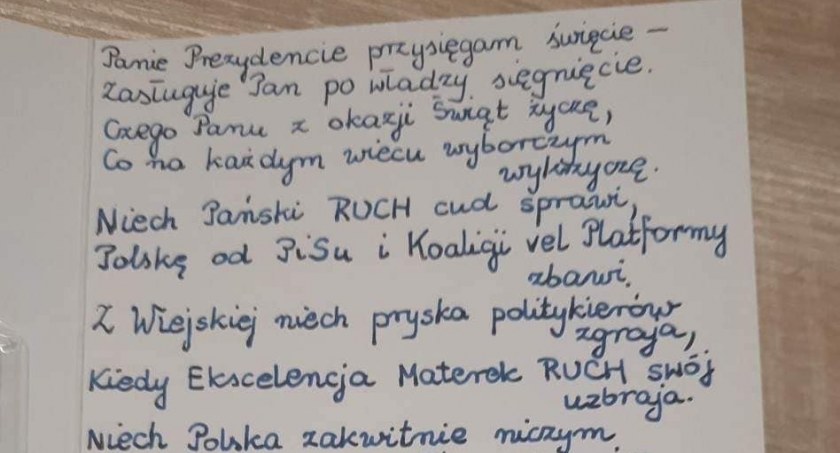 Panie Prezydencie przysięgam święcie –
Zasługuje Pan po władzy sięgnięcie.
Czego Panu z okazji Świąt życzę,
Co na każdym wiecu wyborczym
wykrzyczę.
Niech Pański RUCH cud sprawi,
Polskę od PiSu i Koalicji vel Platformy
zbawi.
Z Wiejskiej niech pryska politykierów
zgraja,
Kiedy Ekscelencja Materek RUCH swój
uzbraja.
Niech Polska zakwitnie niczym